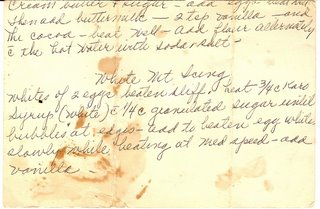 Cream butter + sugar - add eggs
then add buttermilk - 2 tsp vanilla - and
the cocoa - beat well - add flour alternately
c̄ the hot water with soda + salt -
White Mt Icing
Whites of 2 eggs beaten stiff heat 3/4 c Karo
Syrup (white) c̄ 1/4 c granulated sugar until
bubbles at edges - add to beaten egg whites
slowly while beating at med speed - add
vanilla -